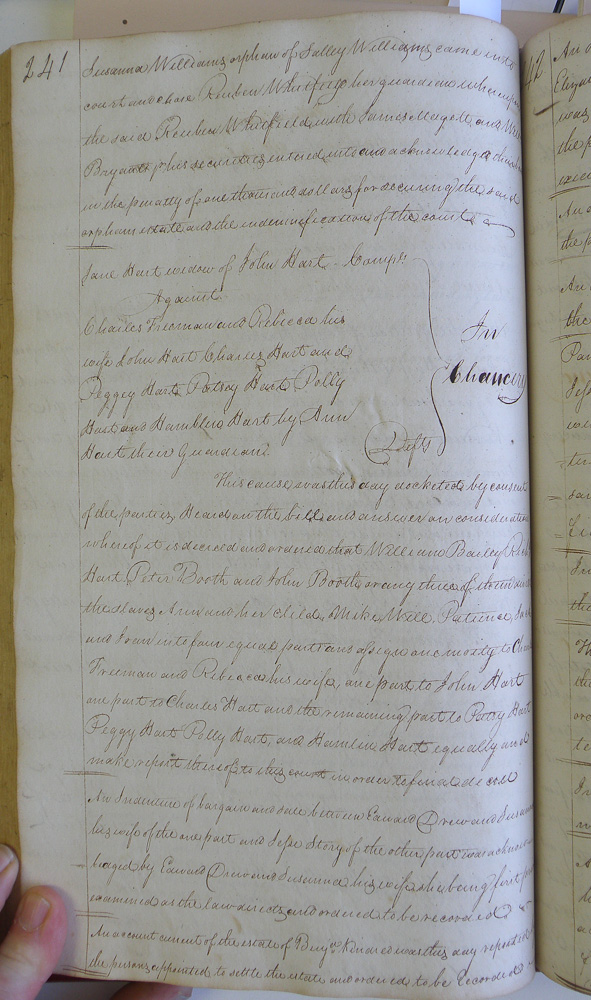 241
Susanna Williams orphan of Salley Williams came into
court and chose Reuben Whitfield her guardian whereupon
the said Reuben Whitfield with James Magett and Will
Bryant his securities entered into and acknowledged a bond
in the penalty of one thousand dollars for securing the said
orphans estate and the indemnification of the court
Jane Hart widow of John Hart Compt
Against
Charles Freeman and Rebecca his
wife John Hart Charles Hart and
Peggey Hart Patsey Hart Polly
Hart and Hamblin Hart by Ann
Hart their Guardian Defts
In
Chancery
This cause was this day docketed by consent
of the parties, Heard on the bill and answer on consideration
whereof it is decreed and ordered that William Bailey
Hart Peter Booth and John Booth or any three of them
the slaves Ann and her child, Mike, Will, Patience,
and into four equal parts and assign one moiety to
Freeman and Rebecca his wife, one part to John Hart
one part to Charles Hart and the remaining part to Patsy Hart
Peggy Hart Polly Hart, and Hamlin Hart equally and
make report thereof to this court in order to final decree
An Indenture of bargain and sale between Edward Drew and Susanna
his wife of the one part and Jesse Story of the other part was
ledged by Edward Drew and Susanna his wife she being first
examined as the law directs and ordered to be recorded
An account current of the estate of Benjn. Kindred was this day reported
the persons appointed to settle the estate and ordered to be recorded
42
An
was
the p
An
the p
An
the